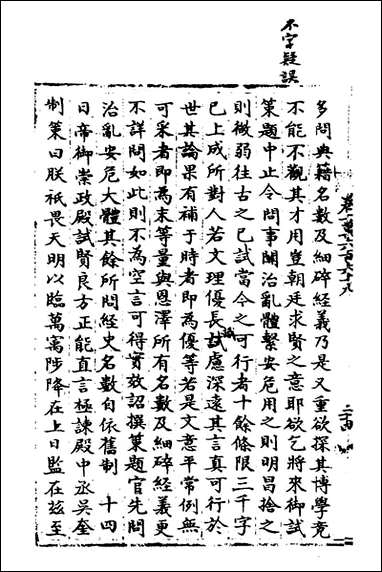 不字疑誤
多問典籍名數及細碎經義乃是又重欲探其博學竟
不能不觀其才用豈朝廷求賢之意耶欲乞將來御試
策題中止令問事關治亂體繫安危用之則明昌捨之
則微弱往古之已試當今之可行者十餘條限三千字
已上成所對人若文理優長誠慮深遠其言真可行於
世其論果有補于時者即為優等若是文意平常例無
可采者即為末等量與恩澤所有名數及細碎經義更
不詳問如此則不為空言可得實效詔撰策題官先問
治亂安危大體其餘所問經史名數自依舊制 十四
日帝御崇政殿試賢良方正能直言極諫殿中丞吳奎
制策曰朕祇畏天明以臨萬寓陟降在上日監在茲至